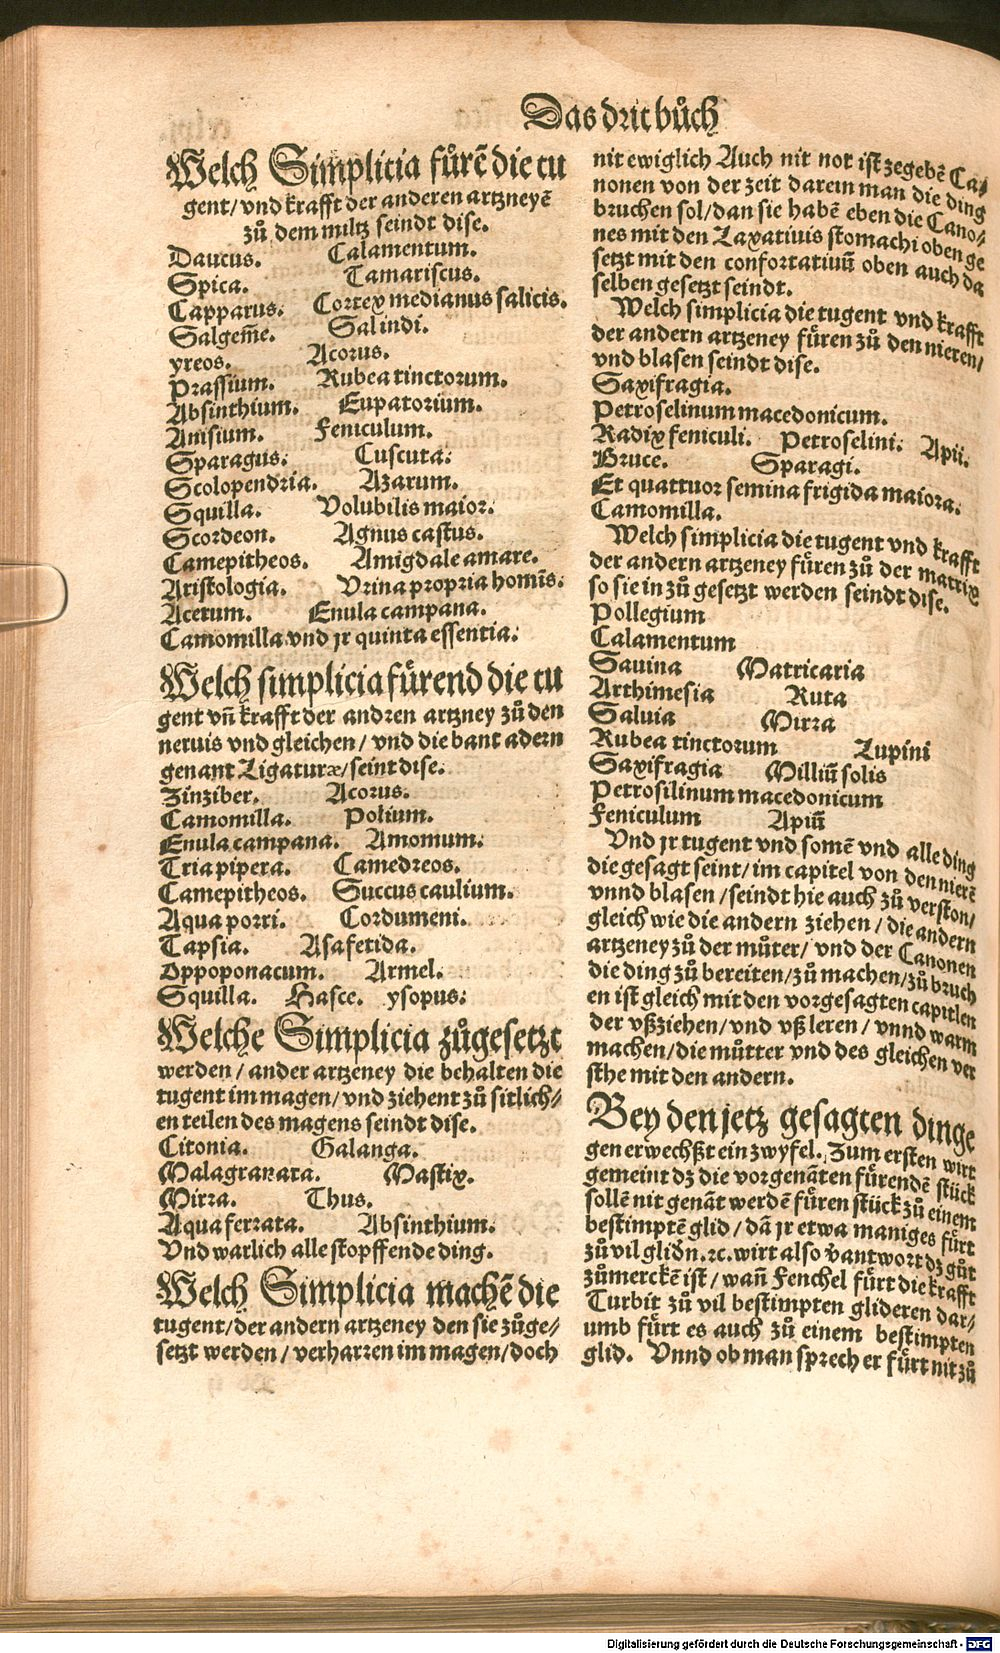 Das drit bůch
Welch Simplicia fůrẽ die tu
gent/ vnd krafft der anderen artzneyẽ
zů dem miltz seindt dise.
Daucus. Calamentum.
Spica. Tamariscus.
Capparus. Cortex medianus salicis.
Salgem̃e. Sal indi.
yreos. Acorus.
Prassium. Rubea tinctorum.
Absinthium. Eupatorium.
Anisium. Feniculum.
Sparagus. Cuscuta.
Scolopendria. Azarum.
Squilla. Volubilis maior.
Scordeon. Agnus castus.
Camepitheos. Amigdale amare.
Aristologia. Vrina propria homīs.
Acetum. Enula campana.
Camomilla vnd jr quinta essentia.
Welch simplicia fůrend die tu
gent vñ krafft der andren artzney zů den
neruis vnd gleichen/ vnd die bant adern
genant Ligaturæ/ seint dise.
Zinziber. Acorus.
Camomilla. Polium.
Enula campana. Amomum.
Tria pipera. Camedreos.
Camepitheos. Succus caulium.
Aqua porri. Cordumeni.
Tapsia. Asafetida.
Oppoponacum. Armel.
Squilla. Hasce. ysopus.
Welche Simplicia zůgesetzt
werden/ ander artzeney die behalten die
tugent im magen/ vnd ziehent zů sitlich-
en teilen des magens seindt dise.
Citonia. Galanga.
Malagranata. Mastix.
Mirra. Thus.
Aqua ferrata. Absinthium.
Vnd warlich alle stopffende ding.
Welch Simplicia machẽ die
tugent/ der andern artzeney den sie zůge-
setzt werden/ verharren im magen/ doch
nit ewiglich Auch nit not ist zegebẽ Ca-
nonen von der zeit darein man die ding
bruchen sol/ dan sie habẽ eben die Cano-
nes mit den Laxatiuis stomachi oben ge
setzt mit den confortatiuū oben auch da
selben gesetzt seindt.
Welch simplicia die tugent vnd krafft
der andern artzeney fůren zů den nieren/
vnd blasen seindt dise.
Saxifragia.
Petroselinum macedonicum.
Radix feniculi. Petroselini. Apii.
Bruce. Sparagi.
Et quattuor semina frigida maiora.
Camomilla.
Welch simplicia die tugent vnd krafft
der andern artzeney fůren zů der matrix
so sie in zů gesetzt werden seindt dise.
Pollegium
Calamentum
Sauina Matricaria
Arthimesia Ruta
Saluia Mirra
Rubea tinctorum Lupini
Saxifragia Milliū solis
Petrosilinum macedonicum
Feniculum Apiū
Vnd jr tugent vnd somẽ vnd alle ding
die gesagt seint/ im capitel von den nierẽ
vnnd blasen/ seindt hie auch zů verston/
gleich wie die andern ziehen/ die andern
artzeney zů der můter/ vnd der Canonen
die ding zů bereiten/ zů machen/ zů bruch
en ist gleich mit den vorgesagten capitlen
der vßziehen/ vnd vß leren/ vnnd warm
machen/ die můtter vnd des gleichen ver
sthe mit den andern.
Bey den jetz gesagten dinge
gen erwechßt ein zwyfel. Zum ersten wirt
gemeint dz die vorgenãten fůrendẽ stück
sollẽ nit genãt werdẽ fůren stück zů einem
bestimptẽ glid/ dã jr etwa maniges fůrt
zů vil glidn. ⁊c. wirt also ṽantwort dz gůt
zůmerckẽ ist/ wañ Fenchel fůrt die krafft
Turbit zů vil bestimpten glideren dar/
umb fůrt es auch zů einem bestimpten
glid. Vnnd ob man sprech er fůrt nit zů
Digitalisierung gefördert durch die Deutsche Forschungsgemeinschaft - DFG